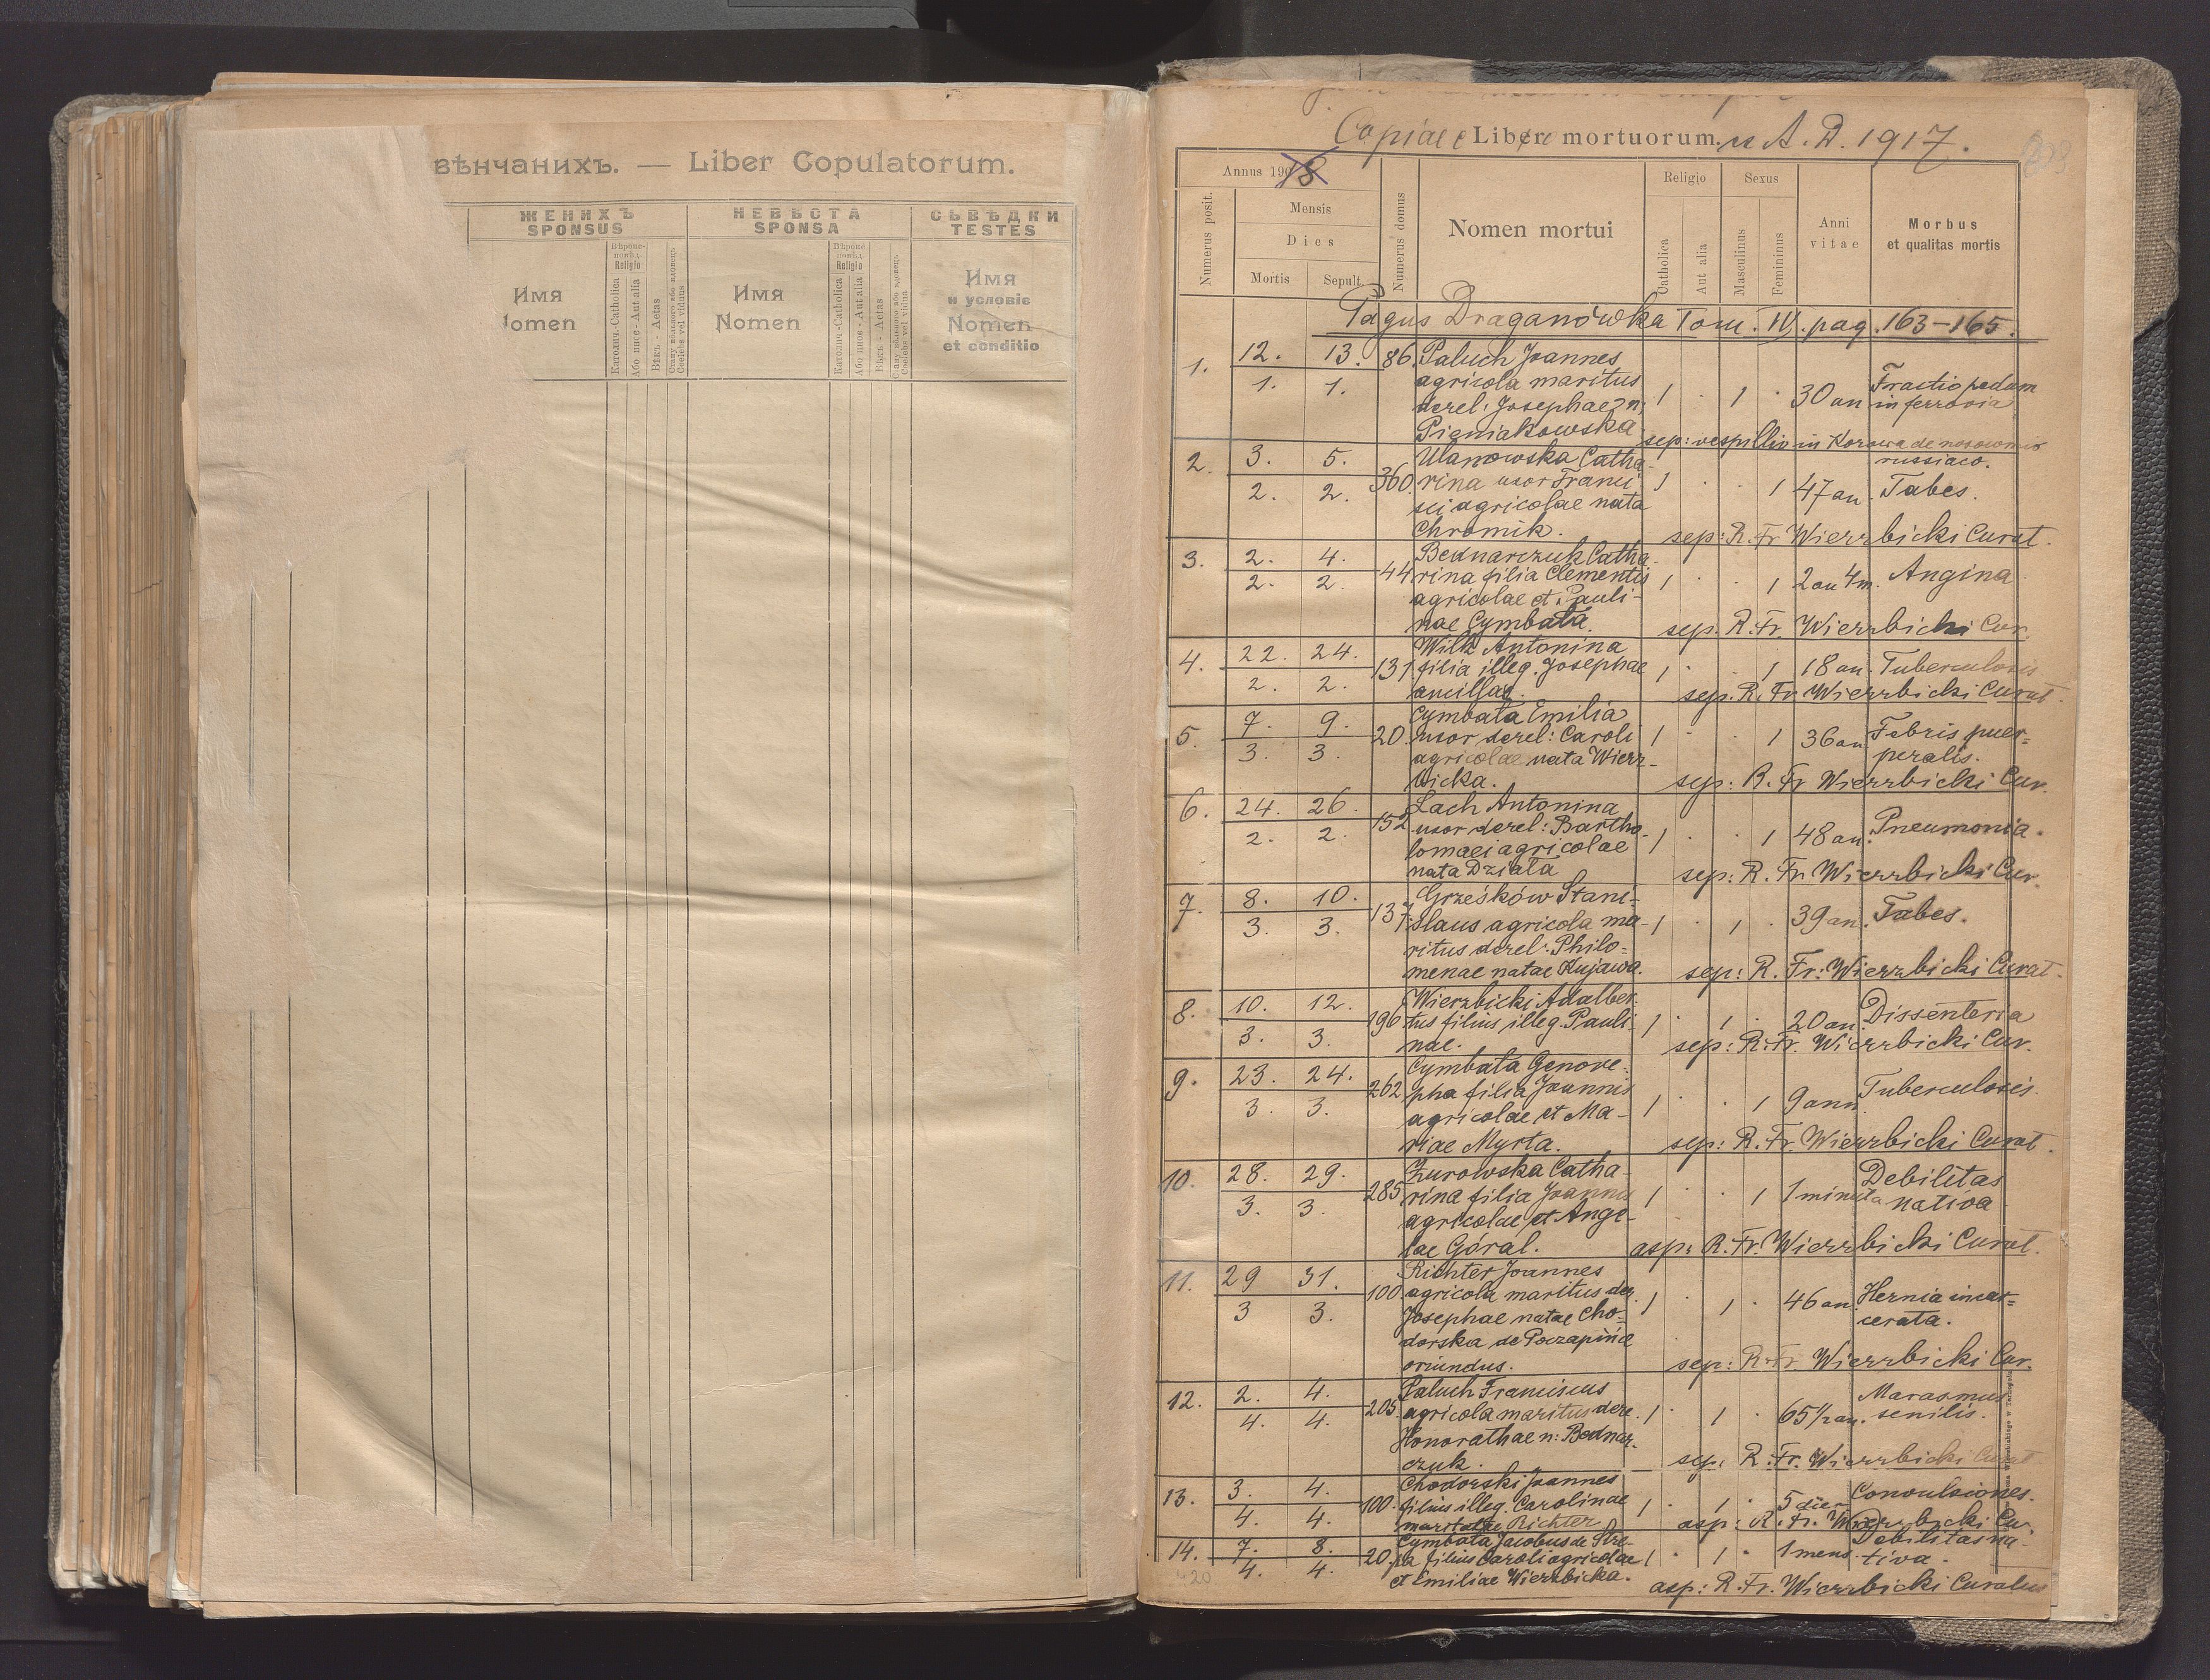 вѣнчанихъ. — Liber Copulatorum.
ЖЕНИХЪ
SPONSUS
НЕВѢСТА
SPONSA
СЪВѢДКИ
TESTES
Religio
Religio
Имя
Nomen
Имя
и условіє
Nomen
et conditio
Имя
omen
Католич.-Catholica
Або инсе - Aut alia
Вѣкъ - Aetas
Coelebs vel viduus
Католич.-Catholica
Або инсе - Aut alia
Вѣкъ - Aetas
Coelebs vel vidua
Copiae Libri mortuorum A. D. 1917.
Annus 1908
Religio
Sexus
Numerus posit.
Mensis
Dies
Mortis
Sepult.
Numerus domus
Nomen mortui
Catholica
Aut alia
Masculinus
Femininus
Anni
vitae
Morbus
et qualitas mortis
Pagus Draganówka Tom. IV. pag. 163-165.
1. 12. 13. 86. Paluch Joannes
1. 1. agricola maritus 1 · 1 · 30 an Fractio pedum
derel: Josephae n: in ferrovia
Pieniakowska sep: vespillio in Korowa de nosocomio
russiaco.
2. 3. 5. 360. Ulanowska Catha-
2. 2. rina uxor Franci 1 · · 1 47 an. Tabes.
sci agricolae nata
Chromik. sep: R. Fr Wierzbicki Curat.
3. 2. 4. 44 Bednarczuk Catha-
2. 2. rina filia Clementis 1 · · 1 2 an 4 m. Angina
agricolae et Pauli-
nae Cymbała. sep. R. Fr. Wierzbicki Cur.
4. 22. 24. 131 Wilk Antonina
2. 2. filia illeg. Josephae 1 · · 1 18 an. Tuberculosis
ancillae. sep. R. Fr. Wierzbicki Curat.
5. 7. 9. 20. Cymbała Emilia
3. 3. uxor derel: Caroli 1 · · 1 36 an. Febris puer=
agricolae nata Wierz- peralis.
bicka. sep: R. Fr Wierzbicki Cur.
6. 24. 26. 152 Lach Antonina
2. 2. uxor derel: Bartho- 1 · · 1 48 an. Pneumonia.
lomaei agricolae
nata Działa sep: R. Fr. Wierzbicki Cur.
7. 8. 10. 137. Grześków Stani-
3. 3. slaus agricola ma- 1 · 1 · 39 an. Tabes.
ritus derel: Philo=
menae natae Kujawa. sep: R. Fr: Wierzbicki Curat.
8. 10. 12. 196 Wierzbicki Adalber-
3. 3. tus filius illeg. Pauli- 1 · 1 · 20 an. Dissenteria
nae. sep: R. Fr. Wierzbicki Cur.
9. 23. 24. 262 Cymbała Genove-
3. 3. pha filia Joannis 1 · · 1 9 ann. Tuberculosis.
agricolae et Ma-
riae Myrta. sep: R. Fr. Wierzbicki Curat.
10. 28. 29. 285 Żurowska Catha-
3. 3. rina filia Joannis 1 · · 1 1 minuta Debilitas
agricolae et Ange- nativa
lae Góral. asp: R. Fr. Wierzbicki Curat.
11. 29 31. 100. Richter Joannes
3 3. agricola maritus der. 1 · 1 · 46 an. Hernia incar=
Josephae natae Cho- cerata.
dorska de Poczapińce
oriundus. sep: R. Fr. Wierzbicki Cur.
12. 2. 4. 205. Paluch Franciscus
4. 4. agricola maritus dere. 1 · 1 · 65 1/2 an. Marasmus
Honorathae n: Bednar- senilis.
czuk. sep: R. Fr. Wierzbicki Curat
13. 3. 4. 100. Chodorski Joannes
4. 4. filius illeg. Carolinae 1 · 1 · 5 dies Convulsiones.
maritatae Richter asp: R. Fr. Wierzbicki Cur.
14. 7. 8. 20. Cymbała Jacobus de Stre-
4. 4. pa filius Caroli agricolae 1 · 1 · 1 mens. Debilitas na-
et Emiliae Wierzbicka. tiva.
asp: R. Fr. Wierzbicki Curatus
420